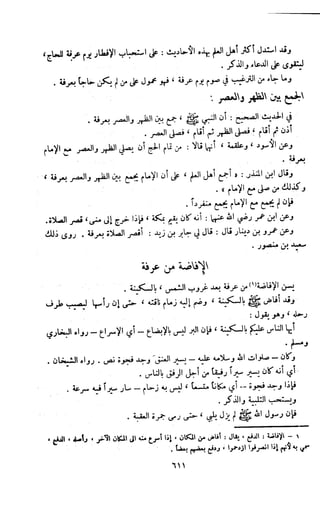 وقد استدل أكثر أهل العلم بهذه الأحاديث : على استحباب الإفطار يوم عرفة للحاج ،
ليتقوى على الدعاء والذكر .
وما جاء من الترغيب في صوم يوم عرفة ، فهو محمول على من لم يكن حاجاً بعرفة .
الجمع بين الظهر والعصر :
في الحديث الصحيح : أن النبي ﷺ ، جمع بين الظهر والعصر بعرفة .
أذن ثم أقام ، فصلى الظهر ثم أقام ، فصلى العصر .
وعن الأسود ، وعلقمة ، أنهما قالا : من تمام الحج أن يصلي الظهر والعصر مع الإمام
بعرفة .
وقال ابن المنذر : « أجمع أهل العلم ، على أن الإمام يجمع بين الظهر والعصر بعرفة ،
وكذلك من صلى مع الإمام » .
فإن لم يجمع مع الإمام يجمع منفرداً .
وعن ابن عمر رضي الله عنهما : أنه كان يقيم بمكة ، فإذا خرج إلى منى ، قصر الصلاة .
وعن عمرو بن دينار قال : قال لي جابر بن زيد : أقصر الصلاة بعرفة . روى ذلك
سعيد بن منصور .
الإفاضة من عرفة
يسن الإفاضة(١) من عرفة بعد غروب الشمس ، بالسكينة .
وقد أفاض ﷺ بالسكينة ، وضم إليه زمام ناقته ، حتى إن رأسها ليصيب طرف
رحله ، وهو يقول :
أيها الناس عليكم بالسكينة ، فإن البر ليس بالإيضاع – أي الإسراع – رواه البخاري
ومسلم .
وكان – صلوات الله وسلامه عليه – يسير العنق فإذا وجد فجوة نص . رواه الشيخان .
أي أنه كان يسير سيراً رفيقاً من أجل الرفق بالناس .
فإذا وجد فجوة – أي مكاناً متسعاً ، ليس به زحام – سار سيراً فيه سرعة .
ويستحب التلبية والذكر .
فإن رسول الله ﷺ لم يزل يلبي ، حتى رمى جمرة العقبة .
١ – الإفاضة : الدفع ، يقال : أفاض من المكان ، إذا أسرع منه إلى المكان الآخر ، وأصله ، الدفع ،
سمي به لأنهم إذا انصرفوا ازدحموا ، ودفع بعضهم بعضاً .
٦١١